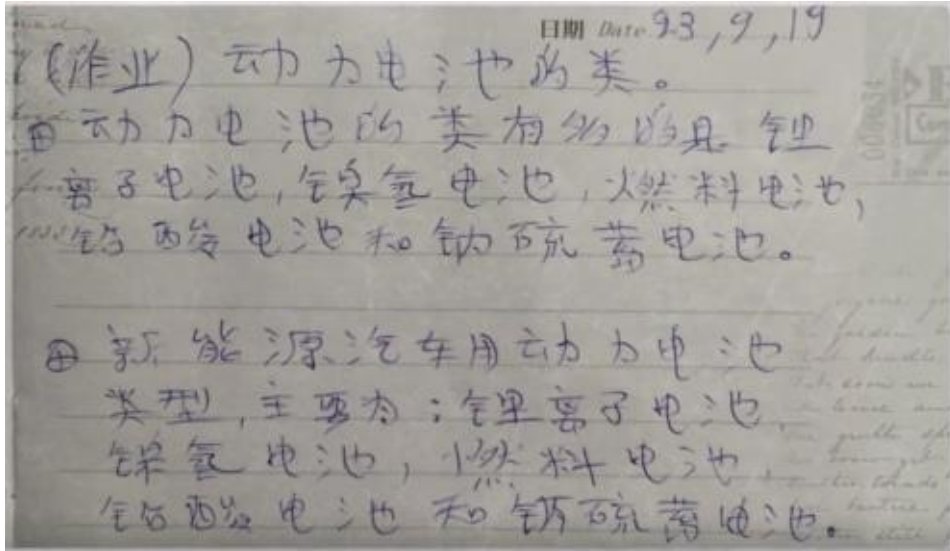 日期 Date 23,9,19
(作业) 动力电池的类。
⊕ 动力电池的类有多的是 锂
离子电池,镍氢电池,燃料电池,
铅酸电池和钠硫蓄电池。
⊕ 新能源汽车用动力电池
类型,主要为:锂离子电池,
镍氢电池,燃料电池,
铅酸电池和钠硫蓄电池。